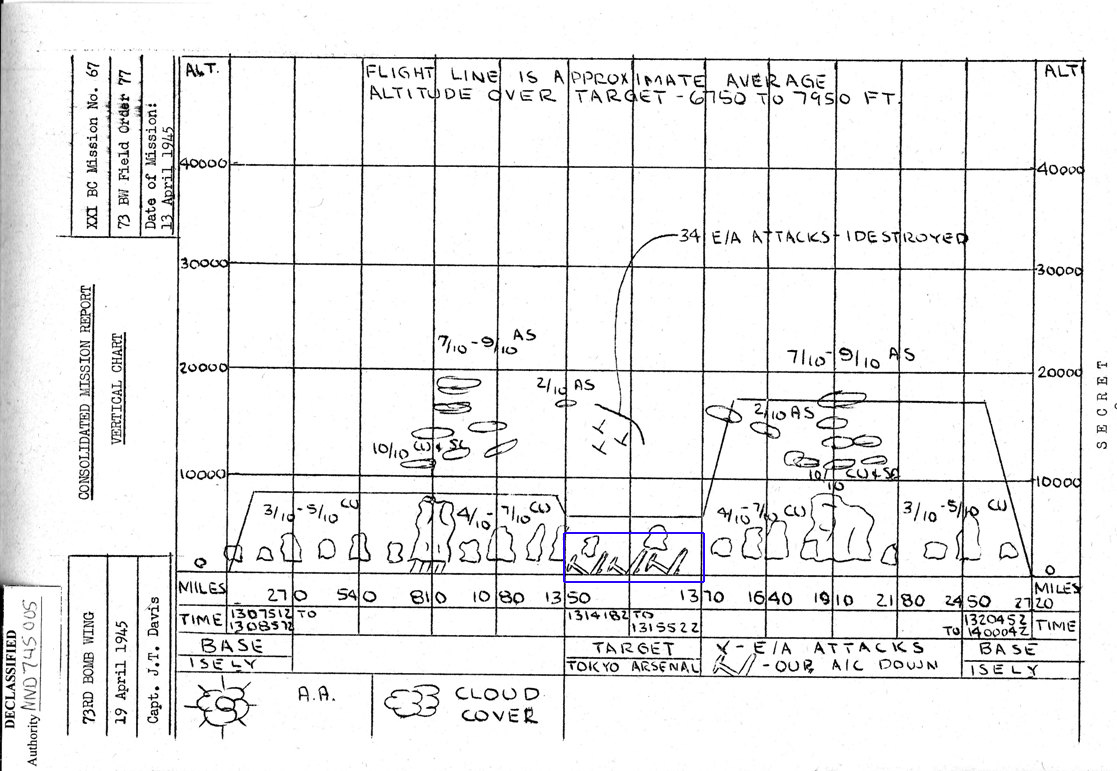 XXI BC Mission No. 67
73 BW Field Order 77
Date of Mission:
13 April 1945
CONSOLIDATED MISSION REPORT
VERTICAL CHART
73RD BOMB WING
19 April 1945
Capt. J.T. Davis
DECLASSIFIED
Authority NND745005
SECRET
ALT. FLIGHT LINE IS APPROXIMATE AVERAGE ALT
ALTITUDE OVER TARGET - 6750 TO 7950 FT.
40000 40000
34 E/A ATTACKS - 1 DESTROYED
30000 30000
7/10 - 9/10 AS 7/10 - 9/10 AS
20000 20000
2/10 AS 2/10 AS
10/10 CU & SC 10/10 CU & SC
10000 10000
10
3/10 - 5/10 CU 4/10 - 7/10 CU 4/10 - 7/10 CU 3/10 - 5/10 CU
0 0
MILES 270 540 810 1080 1350 1370 1640 1910 2180 2450 2720 MILES
TIME 130751Z TO 131418Z TO 132045Z TIME
130857Z 131552Z TO 140004Z
BASE TARGET Y - E/A ATTACKS BASE
ISELY TOKYO ARSENAL - OUR A/C DOWN ISELY
A.A. CLOUD
COVER